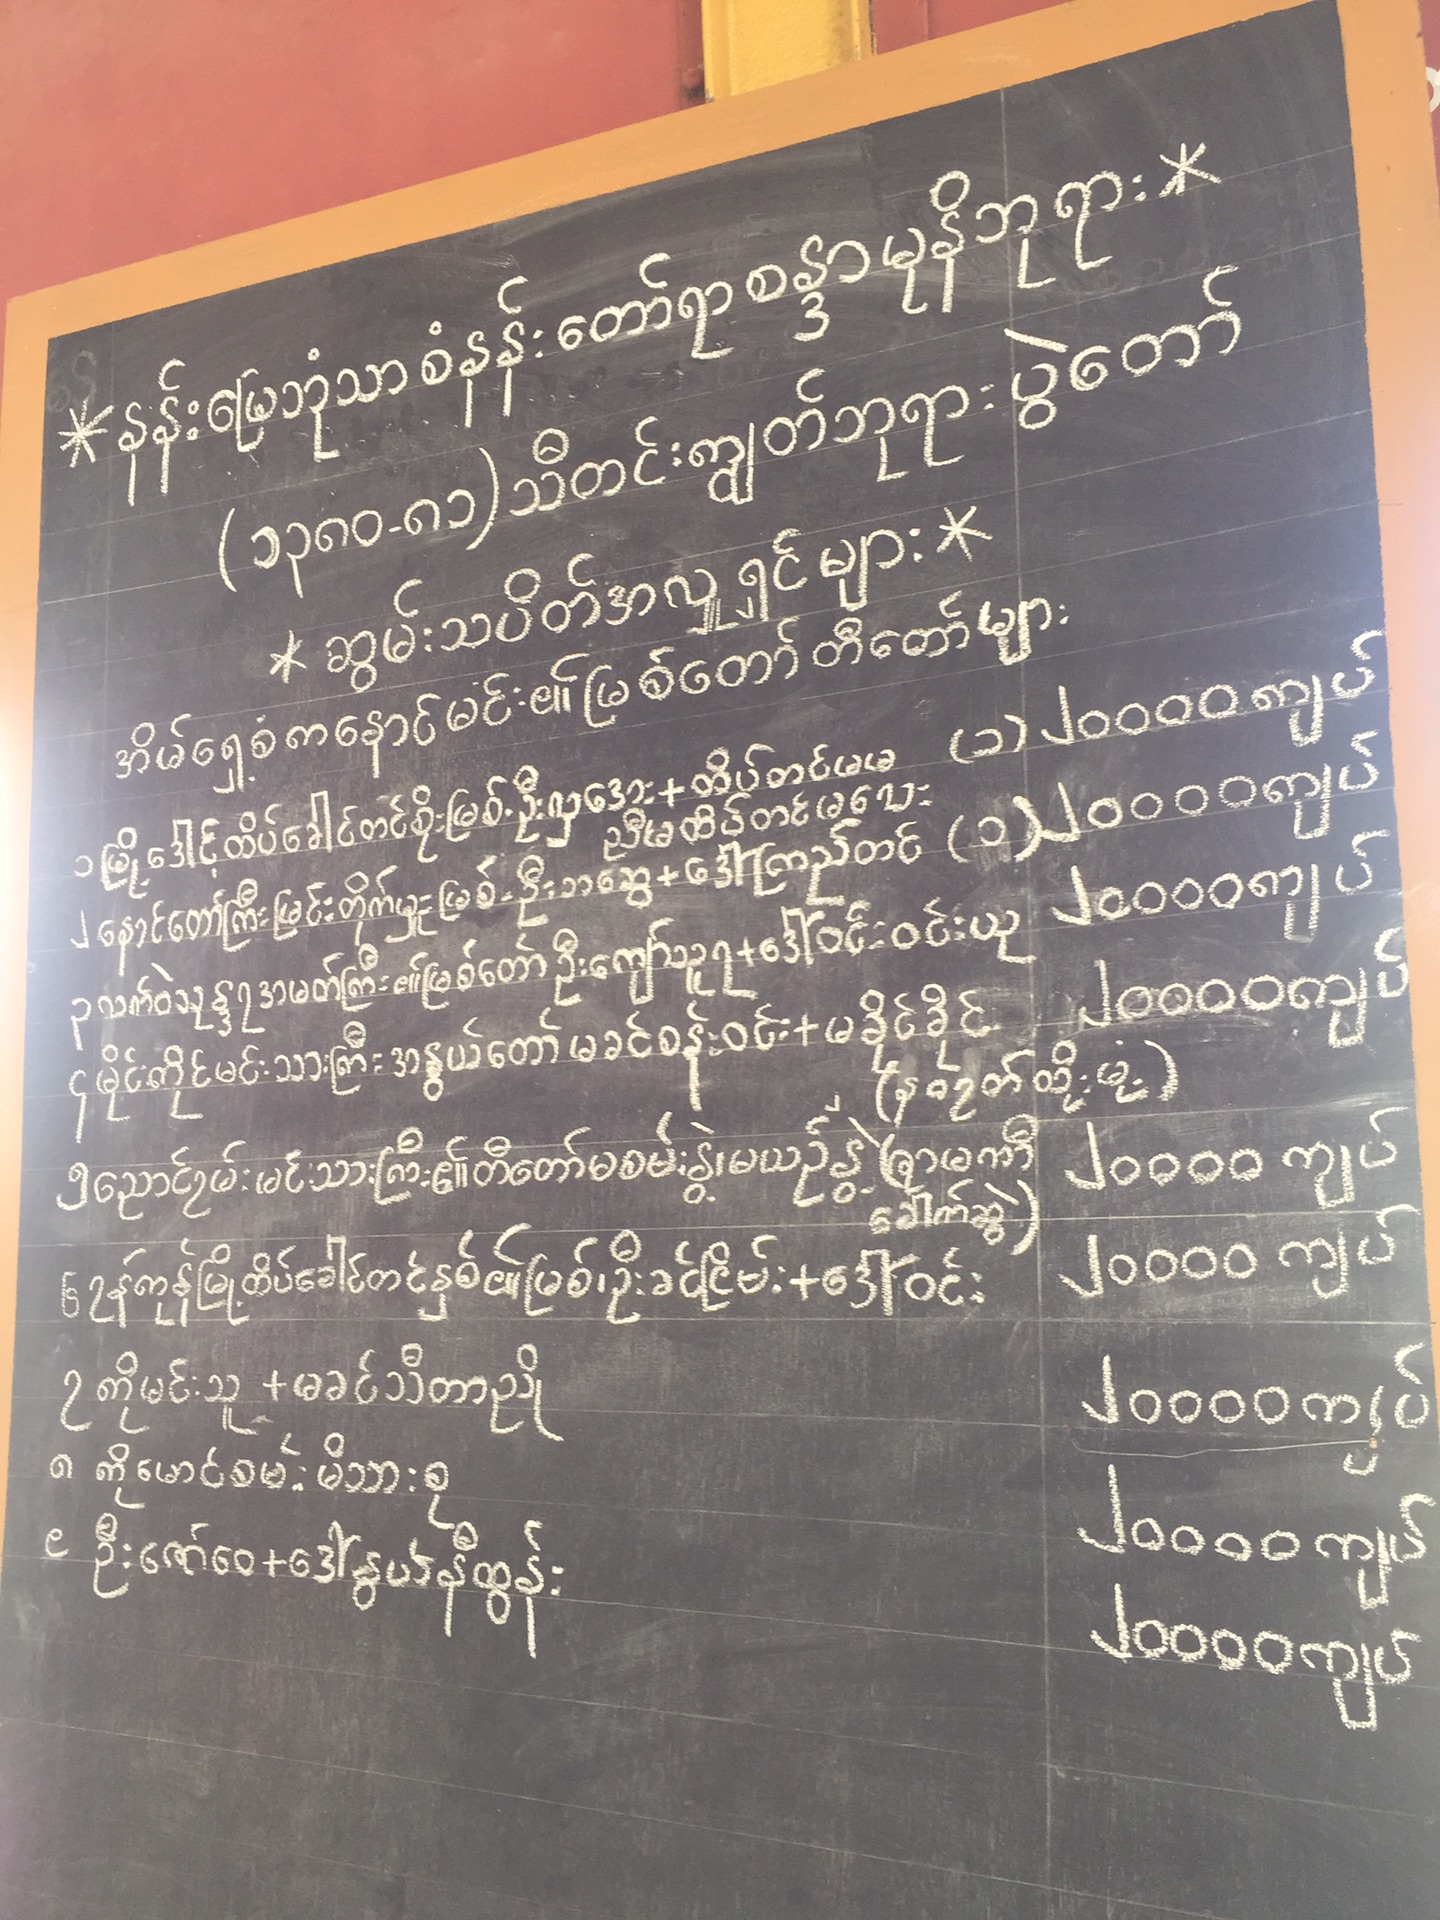 *နန်းမြေဘုံသာစံနန်းတော်ရာစန္ဒာမုနိဘုရား*
(၁၃၈၀-၈၁)သီတင်းကျွတ်ဘုရားပွဲတော်
*ဆွမ်းသပိတ်အလှူရှင်များ*
အိမ်ရှေ့စံကနောင်မင်း၏မြစ်တော်တီတော်များ
၁ မြို့ဒေါင့်ထိပ်ခေါင်တင်စိုးမြစ်-ဦးလှအေး+ထိပ်တင်မမ (၁) ၂၀၀၀၀ကျပ်
ညီမထိပ်တင်မလေး
၂ နောင်တော်ကြီးမြင်းတိုက်မှူးမြစ်-ဦးဘဆွေ+ဒေါ်ကြည်တင် (၁) ၂၀၀၀၀ကျပ်
၃ လက်ဝဲသုန္ဒရအမတ်ကြီး၏မြစ်တော်ဦးကျော်သူရ+ဒေါ်ဝင်းဝင်းယု ၂၀၀၀၀ကျပ်
၄ မိုင်းကိုင်မင်းသားကြီးအနွယ်တော်မခင်စန်းဝင်း+မခိုင်ခိုင် ၂၀၀၀၀ကျပ်
(နဝဂုတ်ထိုးမုံ့)
၅ ညောင်ဥမ်းမင်းသားကြီး၏တီတော်မစမ်းနွဲ့၊မယဉ်နွဲ့(ဇာမဏီ ၂၀၀၀၀ ကျပ်
ခေါက်ဆွဲ)
၆ ဂုန်ကုန်မြို့ထိပ်ခေါင်တင်နှစ်၏မြစ်၊ဦးခင်ငြိမ်း+ဒေါ်ဝင်း ၂၀၀၀၀ ကျပ်
၇ ကိုမင်းသူ+မခင်သီတာညို ၂၀၀၀၀ကျပ်
၈ ကိုမောင်စမ်းမိသားစု ၂၀၀၀၀ကျပ်
၉ ဦးဇော်ဝေ+ဒေါ်နွယ်နီထွန်း ၂၀၀၀၀ကျပ်